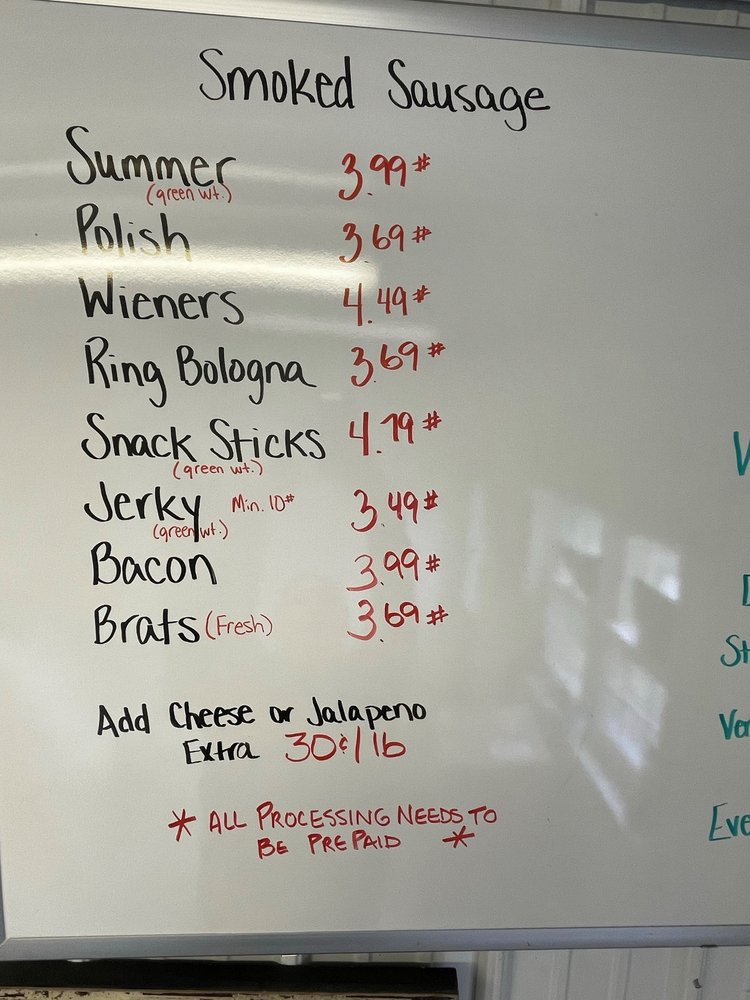 Smoked Sausage
Summer 3.99#
(green wt.)
Polish 3.69#
Wieners 4.49#
Ring Bologna 3.69#
Snack Sticks 4.79#
(green wt.)
Jerky Min. 10# 3.49#
(green wt.)
Bacon 3.99#
Brats (Fresh) 3.69#
Add Cheese or Jalapeno
Extra 30¢/lb
* ALL PROCESSING NEEDS TO
BE PREPAID *